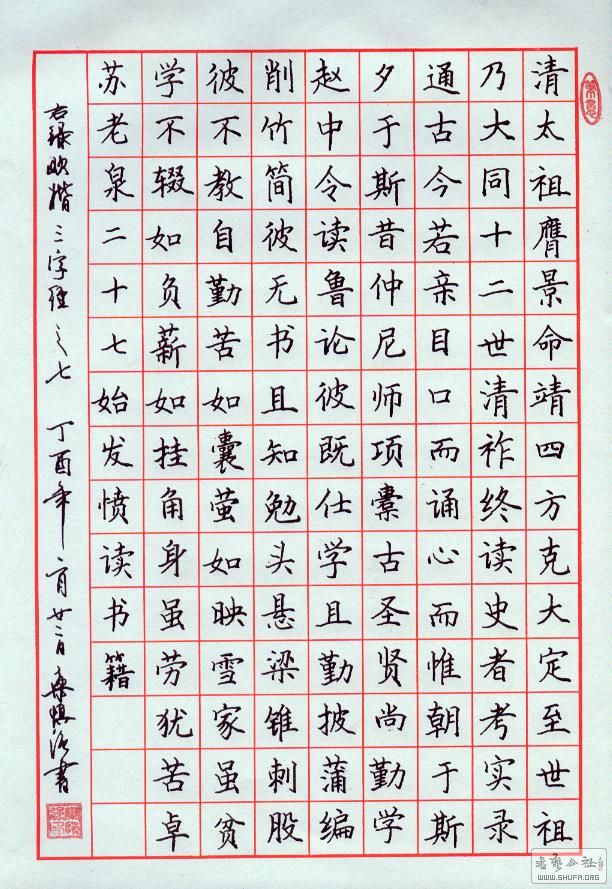 清太祖膺景命靖四方克大定至世祖
乃大同十二世清祚终读史者考实录
通古今若亲目口而诵心而惟朝于斯
夕于斯昔仲尼师项橐古圣贤尚勤学
赵中令读鲁论彼既仕学且勤披蒲编
削竹简彼无书且知勉头悬梁锥刺股
彼不教自勤苦如囊萤如映雪家虽贫
学不辍如负薪如挂角身虽劳犹苦卓
苏老泉二十七始发愤读书籍
右录欧楷三字经之七 丁酉年 月廿二日 书
书艺公社
WWW.SHUFA.ORG